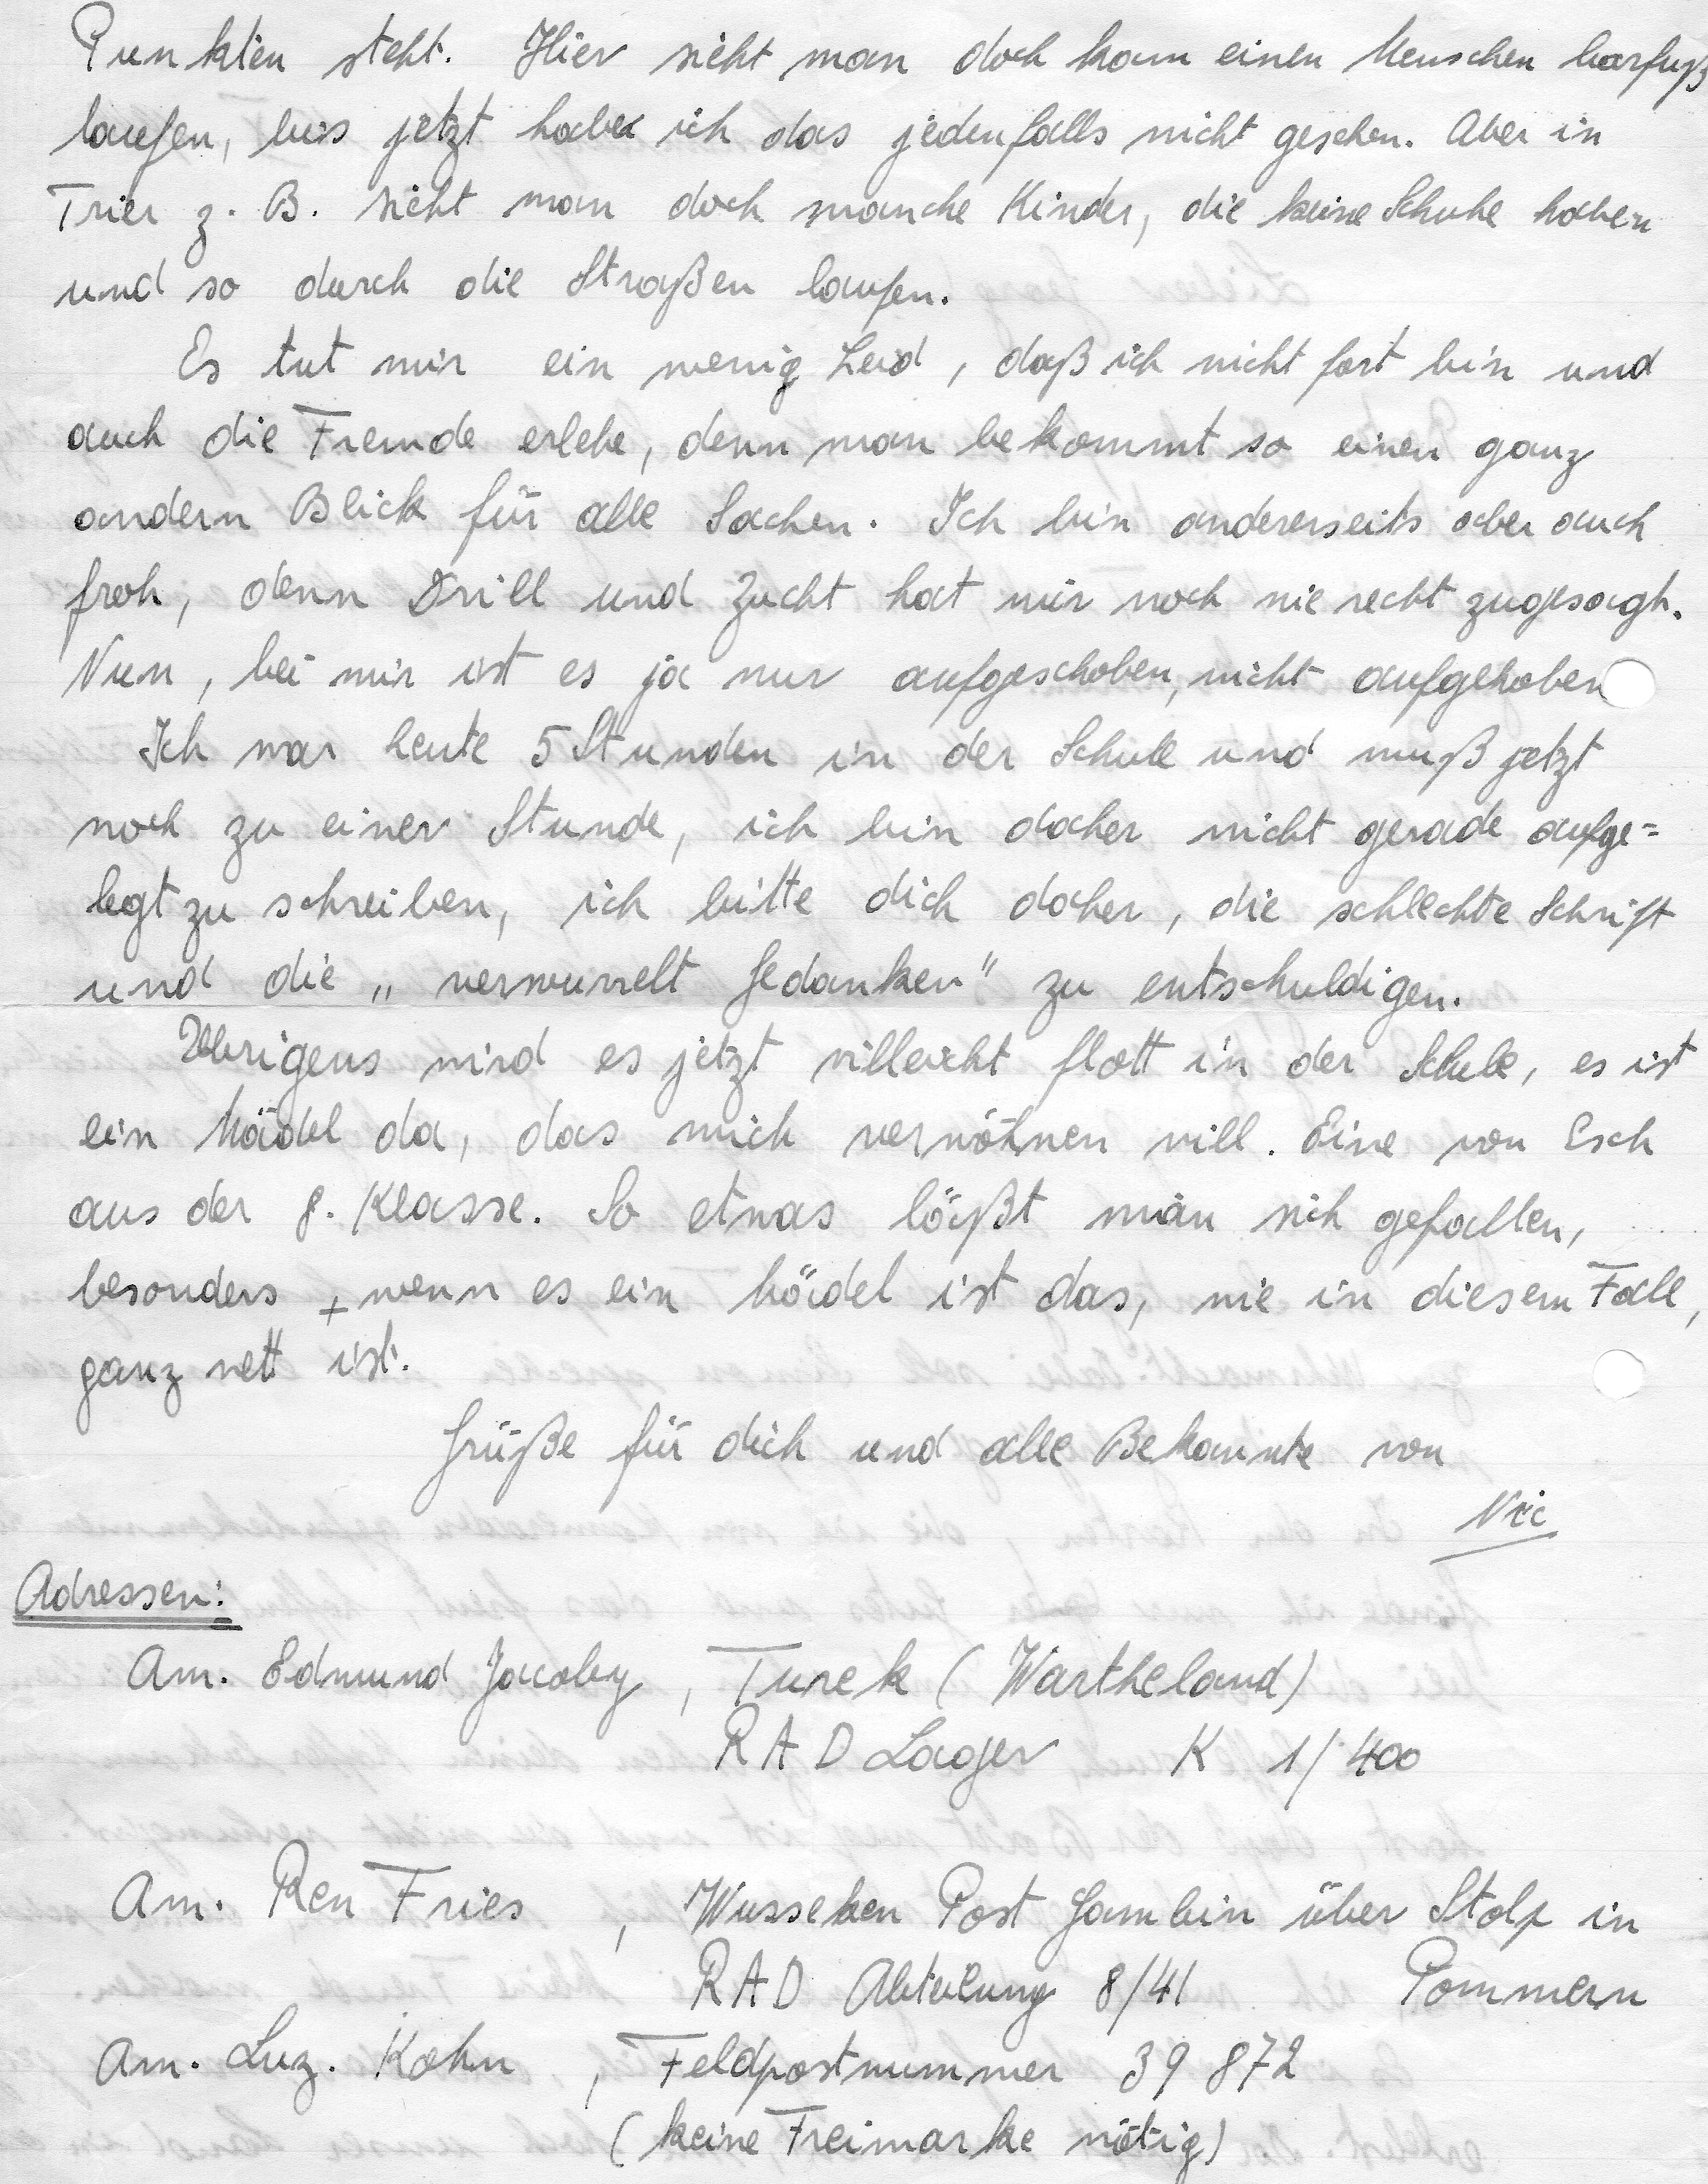 Punkten steht. Hier sieht man doch kaum einen Menschen barfuß
laufen, bis jetzt habe ich das jedenfalls nicht gesehen. Aber in
Trier z. B. sieht man doch manche Kinder, die keine Schuhe haben
und so durch die Straßen laufen.
Es tut mir ein wenig Leid, daß ich nicht fort bin und
auch die Fremde erlebe, denn man bekommt so einen ganz
andern Blick für alle Sachen. Ich bin andererseits aber auch
froh, denn Drill und Zucht hat mir noch nie recht zugesagt.
Nun, bei mir ist es ja nur aufgeschoben, nicht aufgehoben
Ich war heute 5 Stunden in der Schule und muß jetzt
noch zu einer Stunde, ich bin daher nicht gerade aufge=
legt zu schreiben, ich bitte dich daher, die schlechte Schrift
und die „verwurrelt Gedanken" zu entschuldigen.
Übrigens wird es jetzt villeicht flott in der Schule, es ist
ein Mädel da, das mich verwöhnen will. Eine von Esch
aus der 8. Klasse. So etwas läßt man sich gefallen,
besonders + wenn es ein Mädel ist das, wie in diesem Fall,
ganz nett ist.
Grüße für dich und alle Bekannte von
Nic
Adressen:
Am. Edmund Jacoby, Turek (Wartheland)
RAD Lager K 1/400
Am. Ren Fries, Wusseken Post Gambin über Stolp in
RAD Abteilung 8/41 Pommern
Am. Luz. Kohn, Feldpostnummer 39 872
(keine Freimarke nötig)